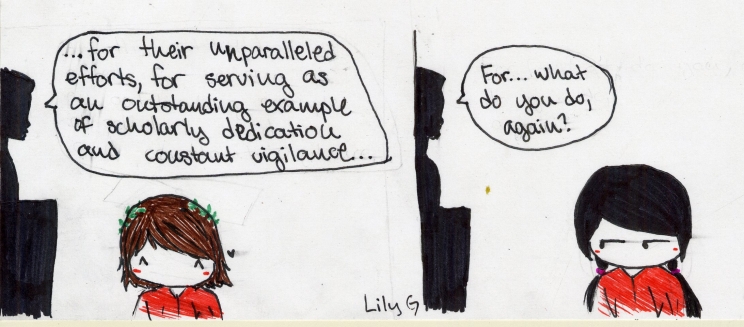 ...for their unparalleled
efforts, for serving as
an outstanding example
of scholarly dedication
and constant vigilance...
For... what
do you do,
again?
Lily G